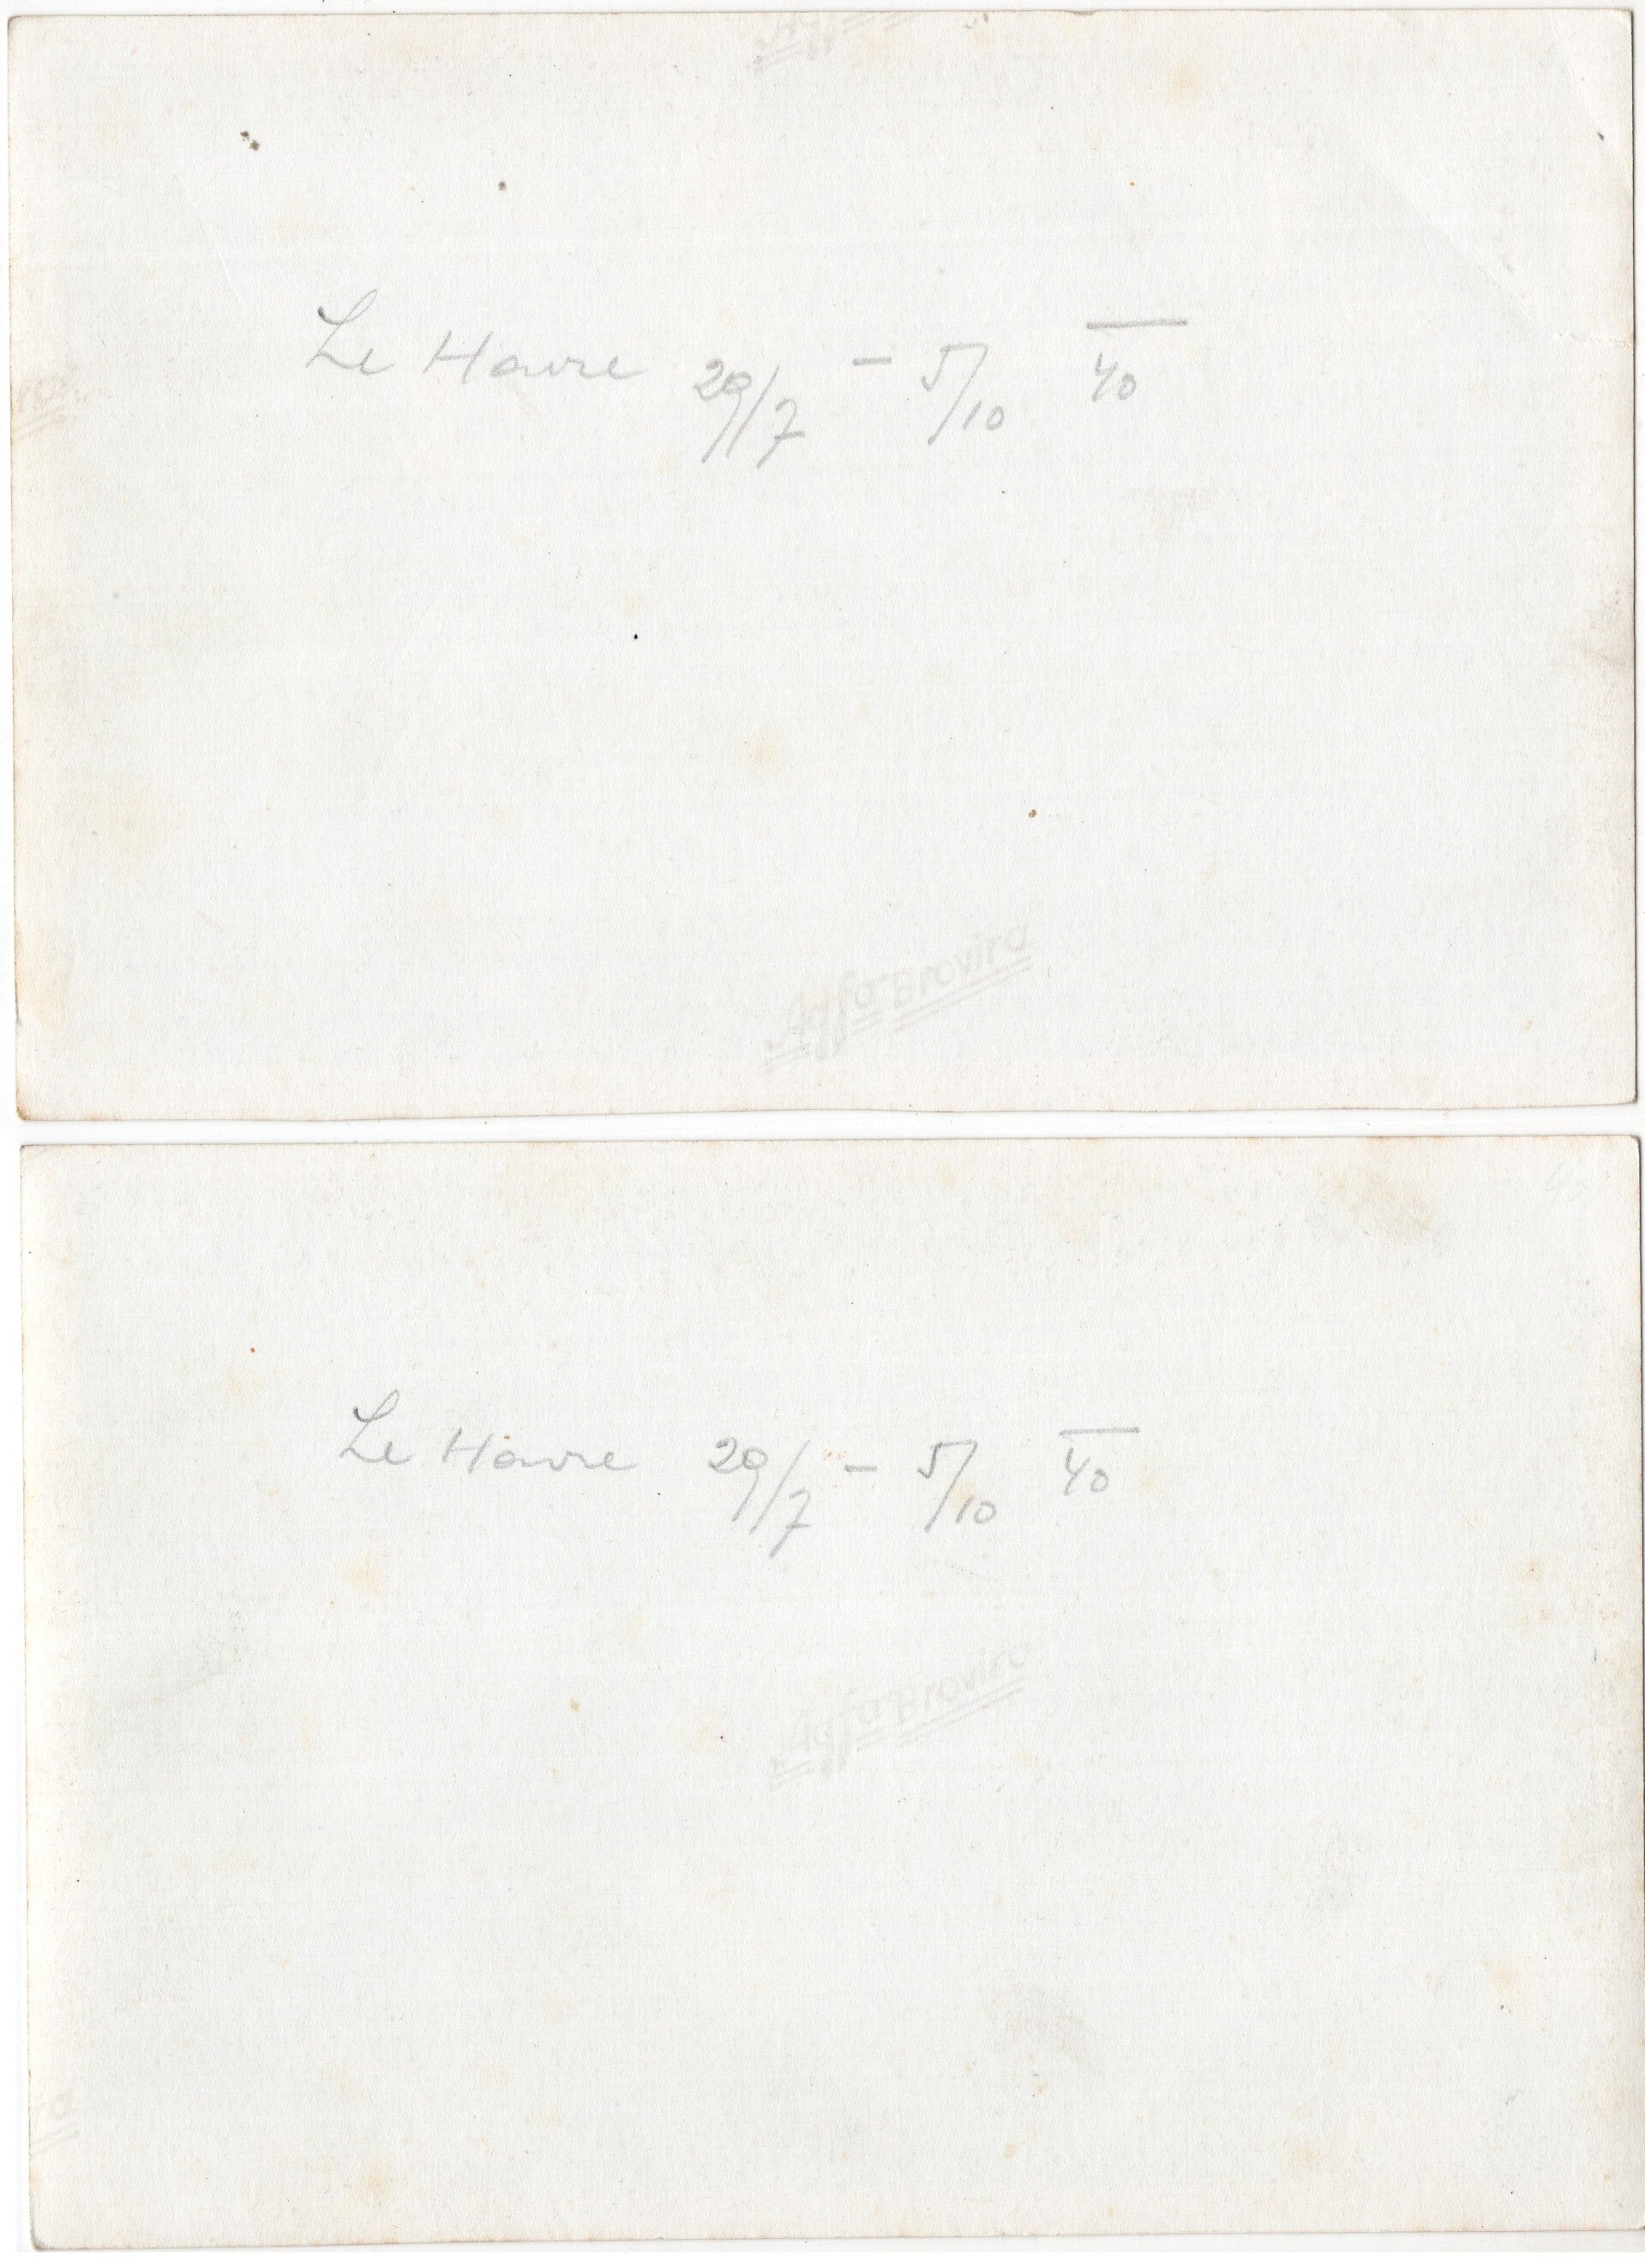 Le Havre 29/7 – 5/10 40
Agfa Brovira
Le Havre 29/7 – 5/10 40
Agfa Brovira